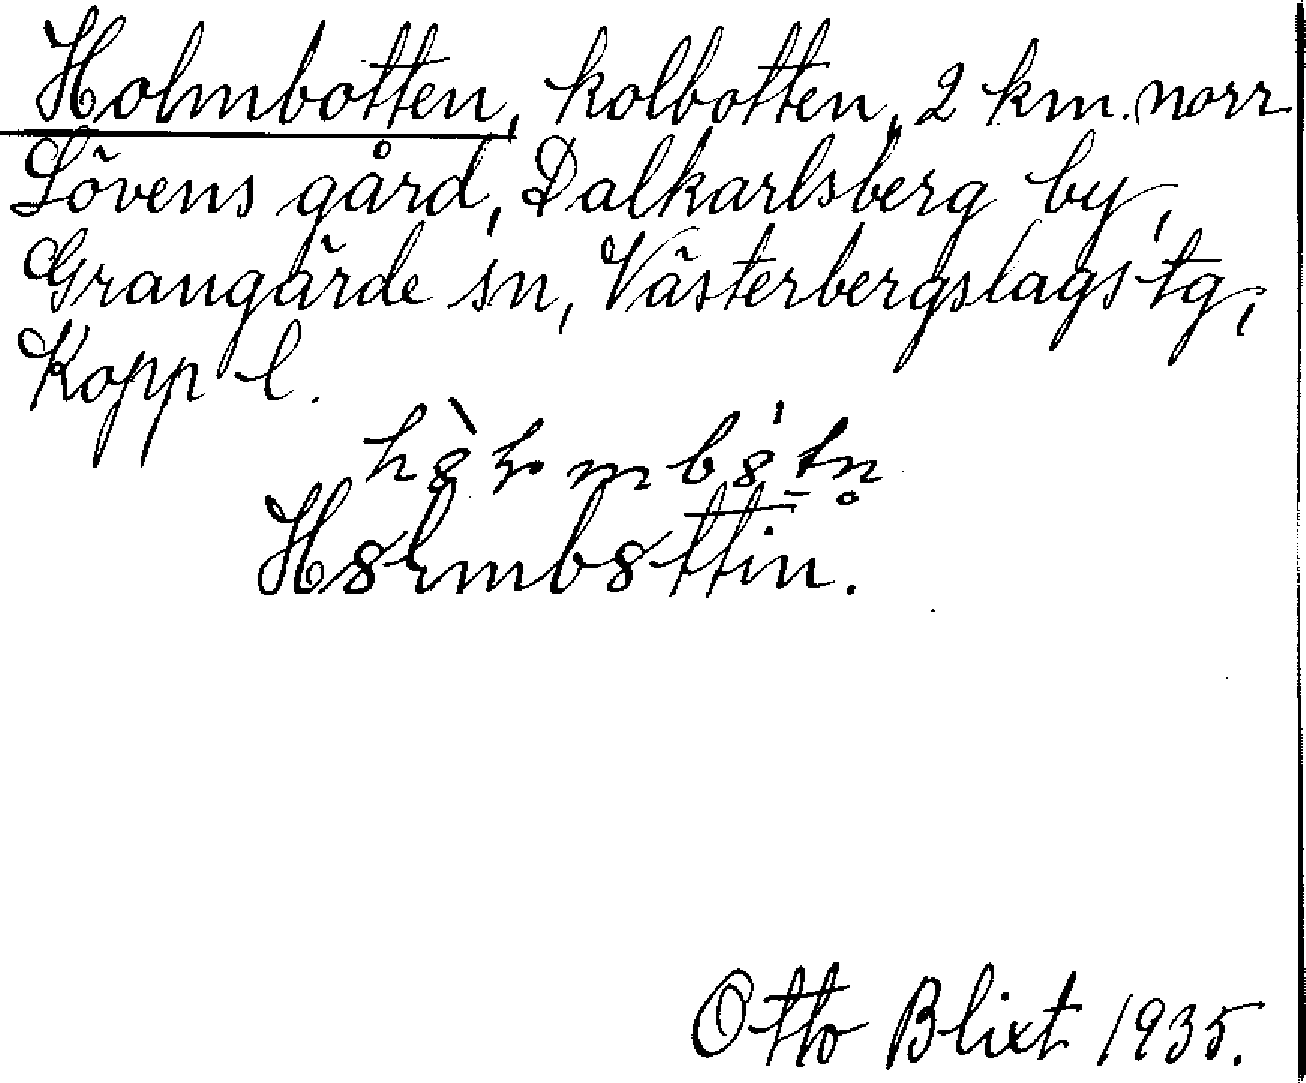 Holmbotten, kolbotten, 2 km. norr
Lövens gård, Dalkarlsberg by,
Grangärde sn, Västerbergslags tg,
Kopp l.
Otto Blixt 1935.